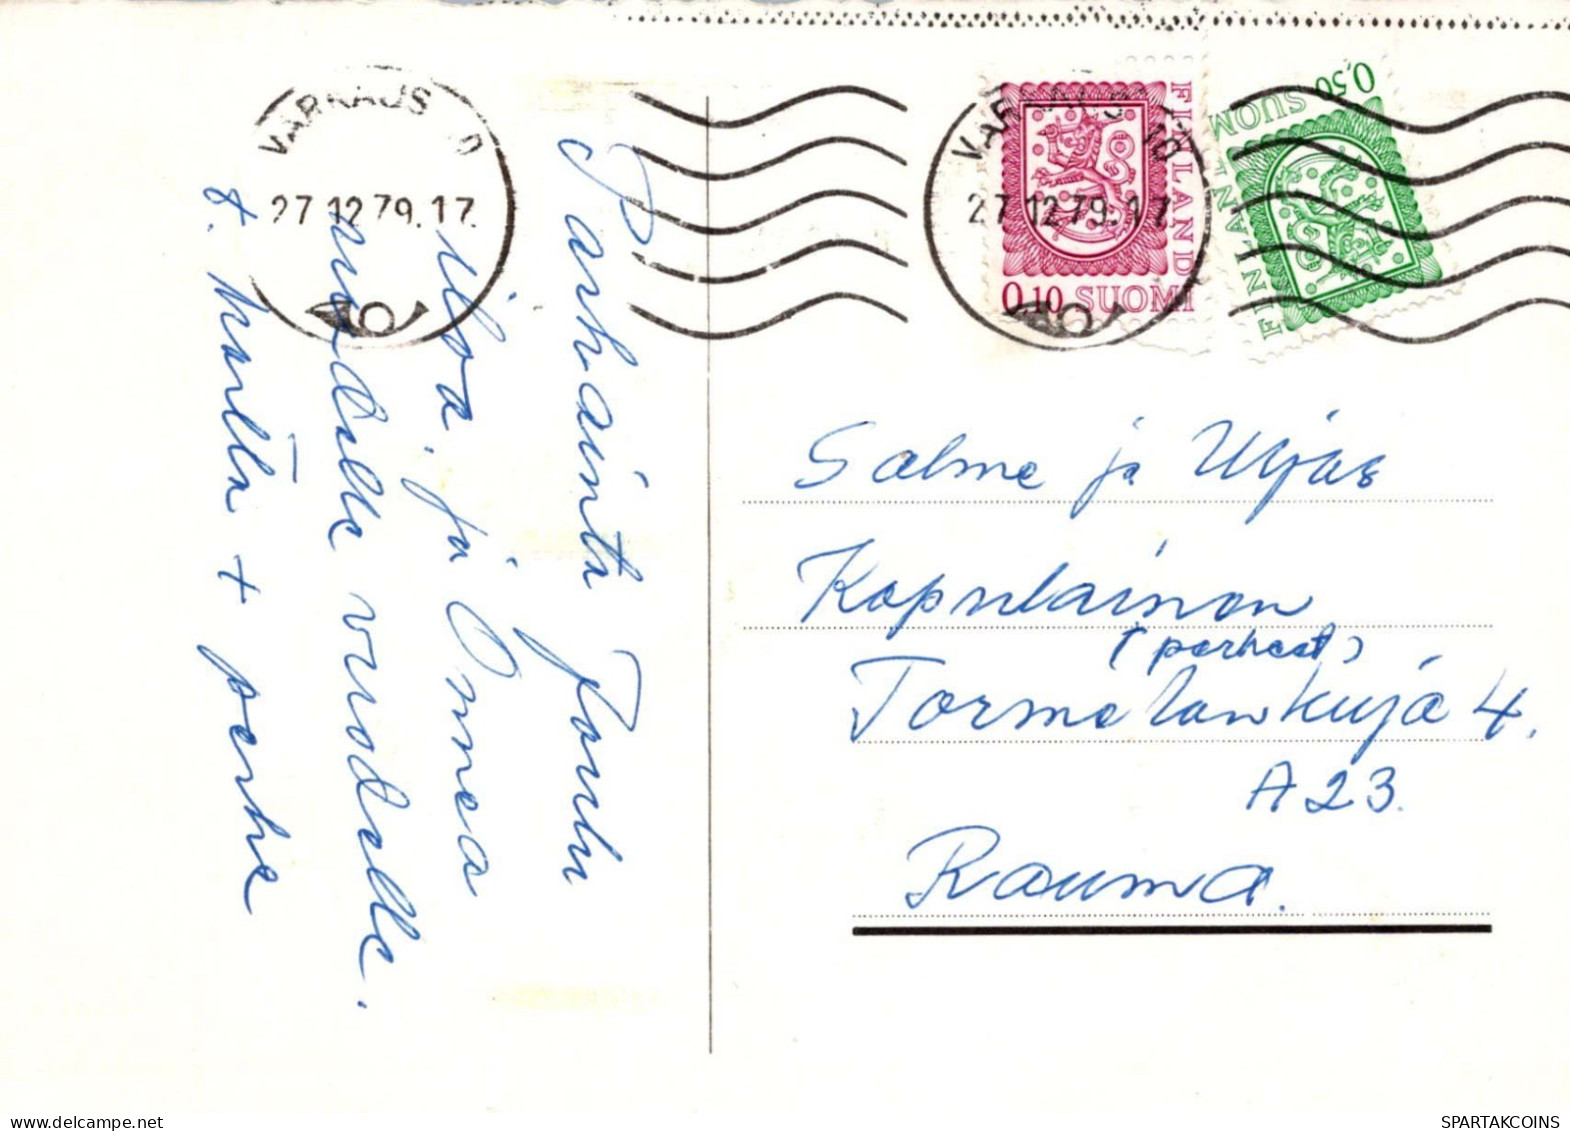 VARKAUS 10
27.12.79.17.
VARKAUS 10
27.12.79.17.
FINLAND
0,10 SUOMI
0,50 SUOMI
FINLAND
Parhainta Joulu
iloa, ja Onnea
uudelle vuodelle.
t. + perhe
Salme ja Uljas
Kopulainen
(perheet)
4.
A 23.
Rauma.
delcampe.net
SPARTAKCOINS